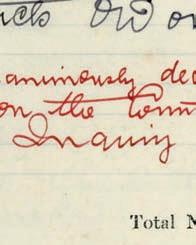 animously dec
on the Comm
Inquiry
Total N